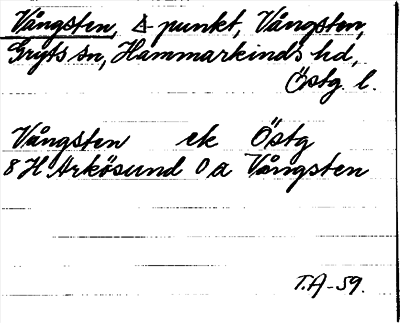 Vångsten, △ punkt, Vångsten,
Gryts sn, Hammarkinds hd,
Östg. l.
Vångsten ek Östg
8 H Arkösund 0 a Vångsten
T.A-59.